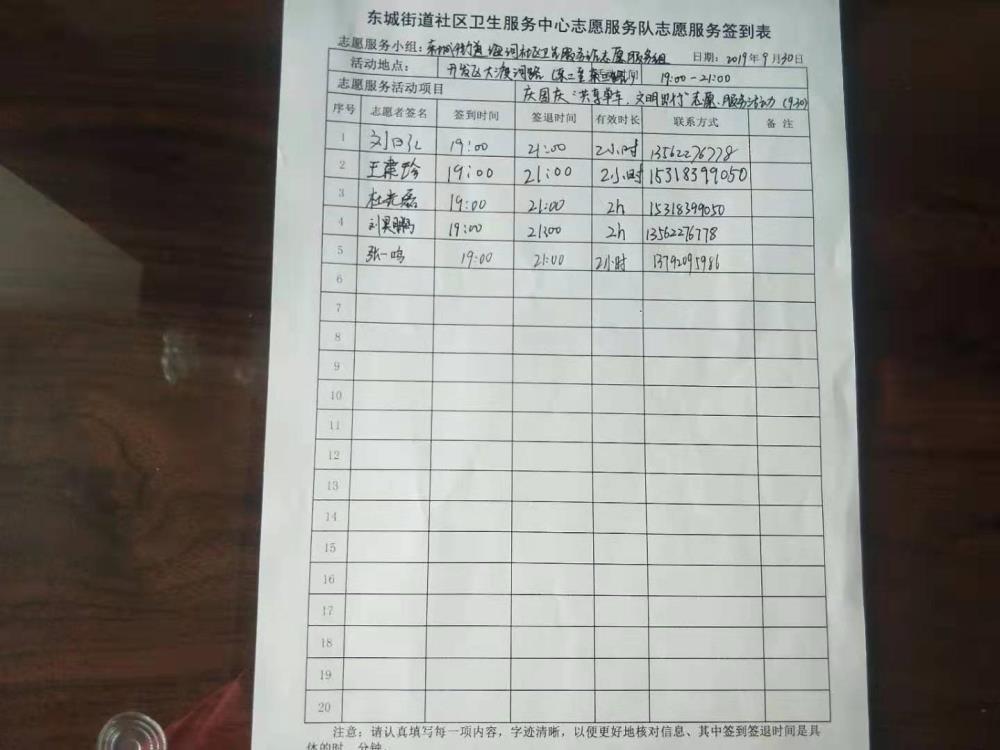 东城街道社区卫生服务中心志愿服务队志愿服务签到表
志愿服务小组：东城街道 河社区卫生服务站志愿服务组 日期：2019年9月30日
活动地点： 开发区大渡河路 19:00-21:00
志愿服务活动项目 庆国庆"共享单车，文明出行"志愿服务活动（9.30）
序号 志愿者签名 签到时间 签退时间 有效时长 联系方式 备注
1 刘 19:00 21:00 2小时 13562276778
2 王 珍 19:00 21:00 2小时 15318399050
3 杜 磊 19:00 21:00 2h 15318399050
4 刘昊鹏 19:00 21:00 2h 13562276778
5 张一鸣 19:00 21:00 2小时 13792095986
6
7
8
9
10
11
12
13
14
15
16
17
18
19
20
注意：请认真填写每一项内容，字迹清晰，以便更好地核对信息、其中签到签退时间是具
体的时、分钟。